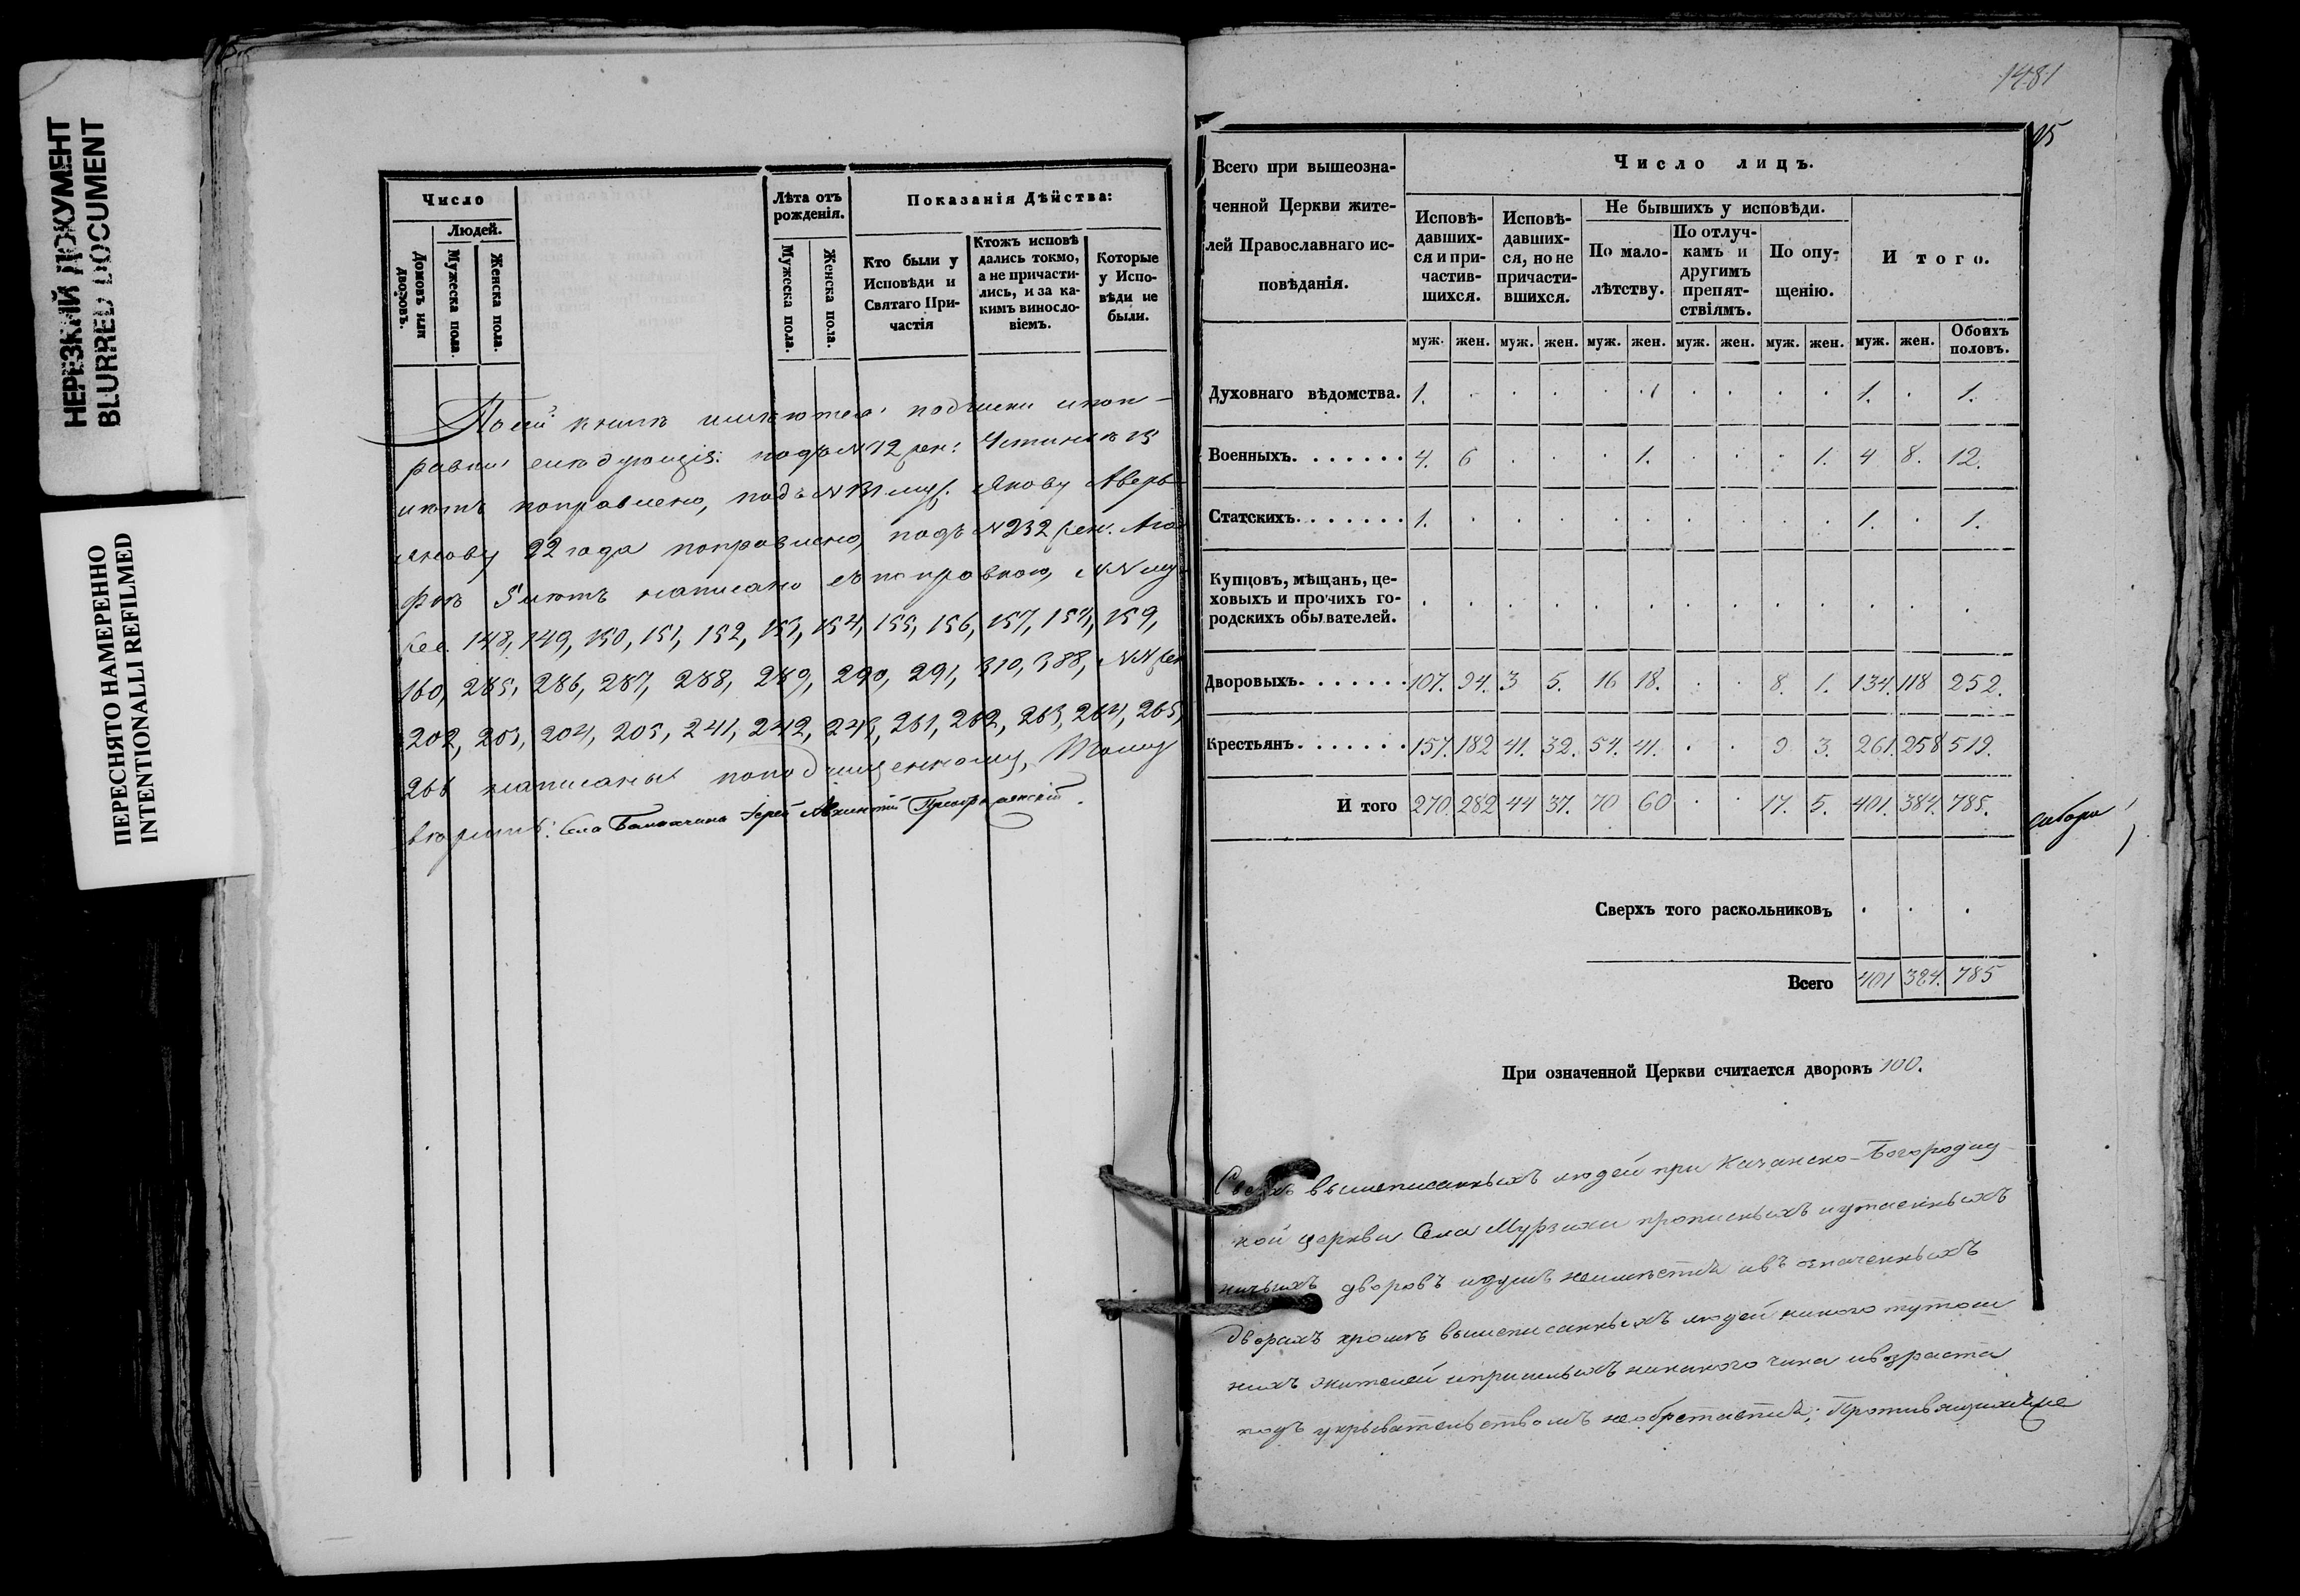 НЕРЕЗКИЙ ДОКУМЕНТ
BLURRED DOCUMENT
ПЕРЕСНЯТО НАМЕРЕННО
INTENTIONALLI REFILMED
Число
Людей.
Домовъ или дворовъ.
Мужеска пола.
Женска пола.
Лѣта отъ рожденія.
Мужеска пола.
Женска пола.
Показанія Дѣйства:
Кто были у Исповѣди и Святаго Причастія
Ктожъ исповѣдались токмо, а не причастились, и за какимъ винословіемъ.
Которые у Исповѣди не были.
книгѣ имѣются подписки и поп-
равки слѣдующія: подъ N 12 жен:
лѣтъ поправлено, подъ N 131 муж. Якову Аверь-
янову 22 года поправлено, подъ N 232 жен. Ага-
фьѣ 5 лѣтъ написано съ поправкою, NN му-
жес. 148, 149, 150, 151, 152, 153, 154, 155, 156, 157, 158, 159,
160, 285, 286, 287, 288, 289, 290, 291, 310, 388, NN жен
202, 203, 204, 205, 241, 242, 243, 261, 262, 263, 264, 265,
266 написаны по подчищенному,
Села Іерей Преображенскій.
1481
Всего при вышеозна-
ченной Церкви жите-
лей Православнаго ис-
повѣданія.
Число лицъ.
Исповѣ-
давших-
ся и при-
частив-
шихся.
Исповѣ-
давших-
ся, но не
причасти-
вшихся.
Не бывшихъ у исповѣди.
По мало-
лѣтству.
По отлуч-
камъ и
другимъ
препят-
ствіямъ.
По опу-
щенію.
Итого.
муж. жен. муж. жен. муж. жен. муж. жен. муж. жен. муж. жен. Обоихъ половъ.
Духовнаго вѣдомства. 1. . . . . 1 . . . . 1. . 1.
Военныхъ. . . . . . . 4. 6 . . . 1. . . . 1. 4 8. 12.
Статскихъ. . . . . . . 1. . . . . . . . . . 1. . 1.
Купцовъ, мѣщанъ, це-
ховыхъ и прочихъ го-
родскихъ обывателей. . . . . . . . . . . . . .
Дворовыхъ. . . . . . . 107. 94. 3 5. 16 18. . . 8. 1. 134. 118 252.
Крестьянъ. . . . . . . 157. 182 41. 32. 54. 41. . . 9 3. 261. 258 519.
И того 270. 282 44 37. 70 60 . . 17. 5. 401. 384. 785.
Сверхъ того раскольниковъ . . .
Всего 401 384. 785
При означенной Церкви считается дворовъ 100.
Сверхъ вышеписанныхъ людей при Казанско-Богородиц-
кой церкви Села Мурзихи прописныхъ и утаенныхъ
ничьихъ дворовъ и душъ неимѣется и въ означенныхъ
дворахъ кромѣ вышеписанныхъ людей никого тутош-
нихъ жителей и пришлыхъ никакого чина и возраста
подъ укрывательствомъ необретается;